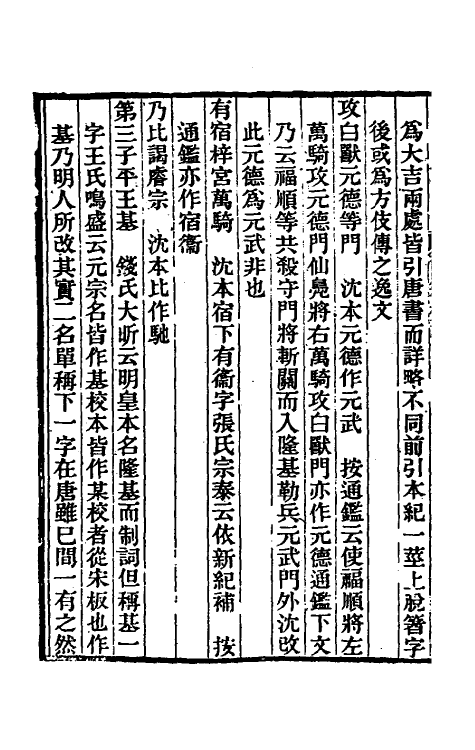 爲大吉兩處皆引唐書而詳略不同前引本紀一莖上脫箸字
後或爲方伎傳之逸文
攻白獸元德等門　沈本元德作元武　按通鑑云使福順將左
萬騎攻元德門仙鳧將右萬騎攻白獸門亦作元德通鑑下文
乃云福順等共殺守門將斬關而入隆基勒兵元武門外沈改
此元德爲元武非也
有宿梓宮萬騎　沈本宿下有衞字張氏宗泰云依新紀補　按
通鑑亦作宿衞
乃比謁睿宗　沈本比作馳
第三子平王基　錢氏大昕云明皇本名隆基而制詞但稱基一
字王氏鳴盛云元宗名皆作基校本皆作某校者從宋板也作
基乃明人所改其實二名單稱下一字在唐雖已間一有之然